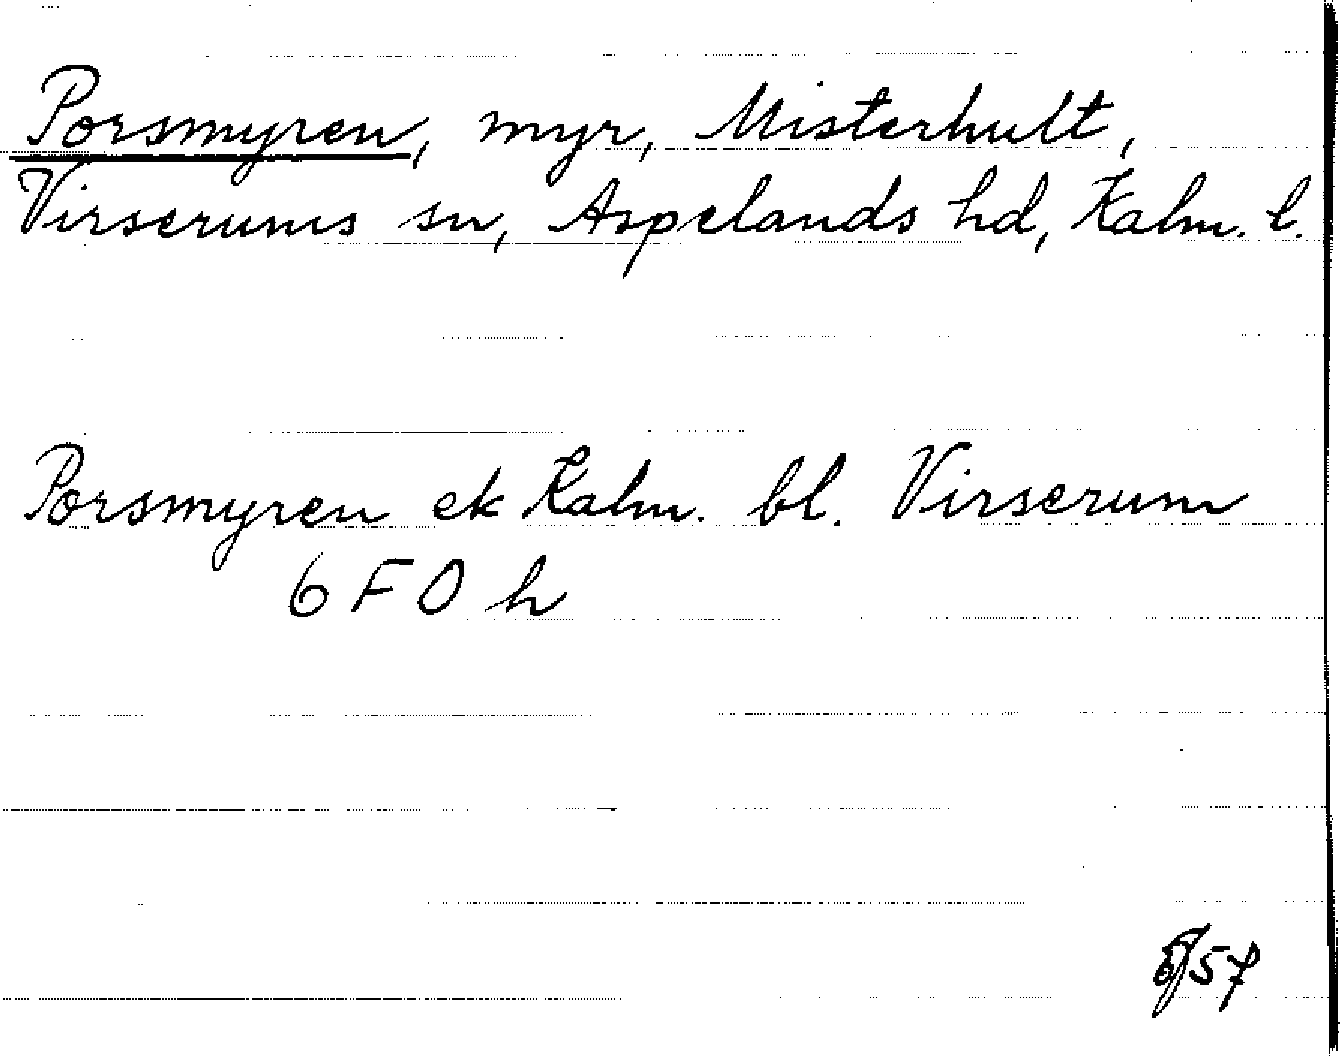 Porsmyren, myr, Misterhult,
Virserums sn, Aspelands hd, Kalm. l.
Porsmyren ek Kalm. bl. Virserum
6 F O h
57